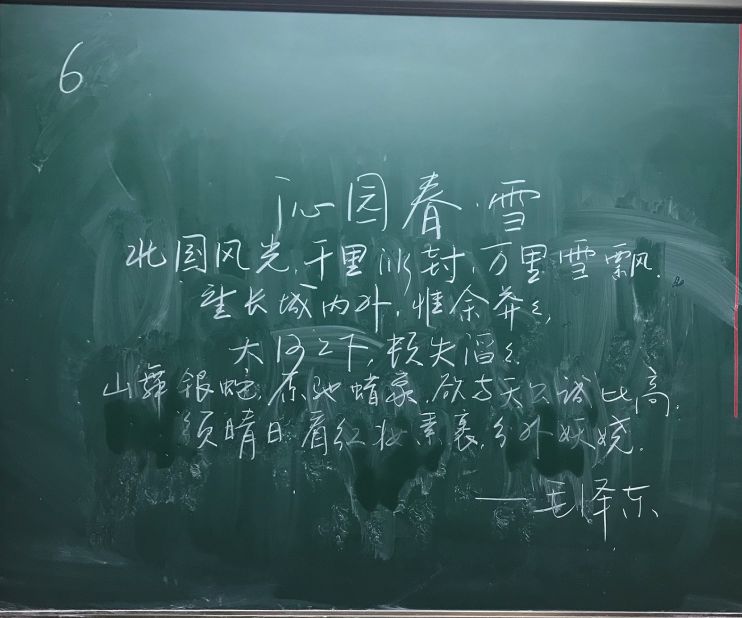 6
沁园春·雪
北国风光,千里冰封,万里雪飘.
望长城内外,惟余莽々,
大河上下,顿失滔々.
山舞银蛇,原驰蜡象,欲与天公试比高.
须晴日,看红妆素裹,分外妖娆.
——毛泽东